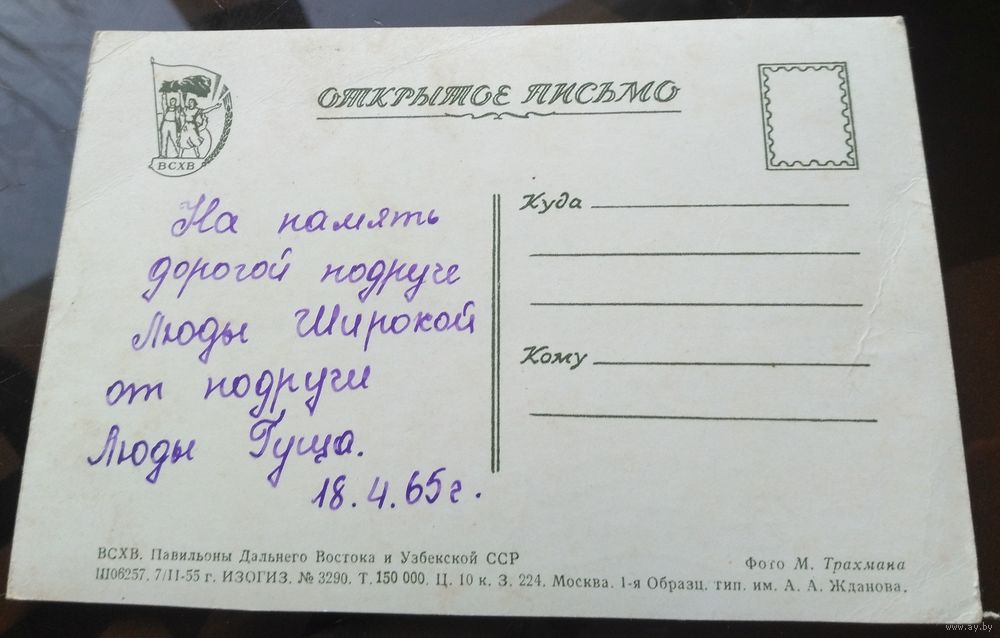 ВСХВ
ОТКРЫТОЕ ПИСЬМО
На память
дорогой подруге
Люды Широкой
от подруги
Люды Гуща.
18.4.65г.
Куда
Кому
ВСХВ. Павильоны Дальнего Востока и Узбекской ССР
Фото М. Трахмана
Ш06257. 7/II-55 г. ИЗОГИЗ. № 3290. Т. 150 000. Ц. 10 к. З. 224. Москва. 1-я Образц. тип. им. А. А. Жданова.
www.ay.by